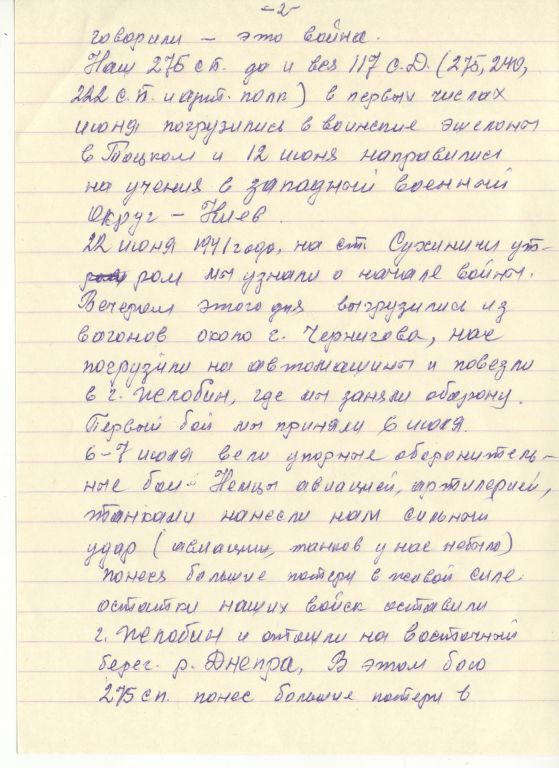 -2-
говорили – это война.
Наш 275 сп. да и вся 117 С.Д. (275, 240,
222 с.п. и арт. полк) в первых числах
июня погрузились в воинские эшелоны
в Тоцком и 12 июня направились
на учения в западный военный
округ – Киев.
22 июня 1941 года, на ст. Сухиничи ут-
ром мы узнали о начале войны.
Вечером этого дня выгрузились из
вагонов около г. Чернигова, нас
погрузили на автомашины и повезли
в г. Жлобин, где мы заняли оборону.
Первый бой мы приняли 6 июля.
6-7 июля вели упорные оборонитель-
ные бои. Немцы авиацией, артилерией,
танками нанесли нам сильный
удар (авиации, танков у нас небыло)
понеся большие потери в живой силе.
остатки наших войск оставили
г. Жлобин и отошли на восточный
берег. р. Днепра, В этом бою
275 сп. понес большие потери в